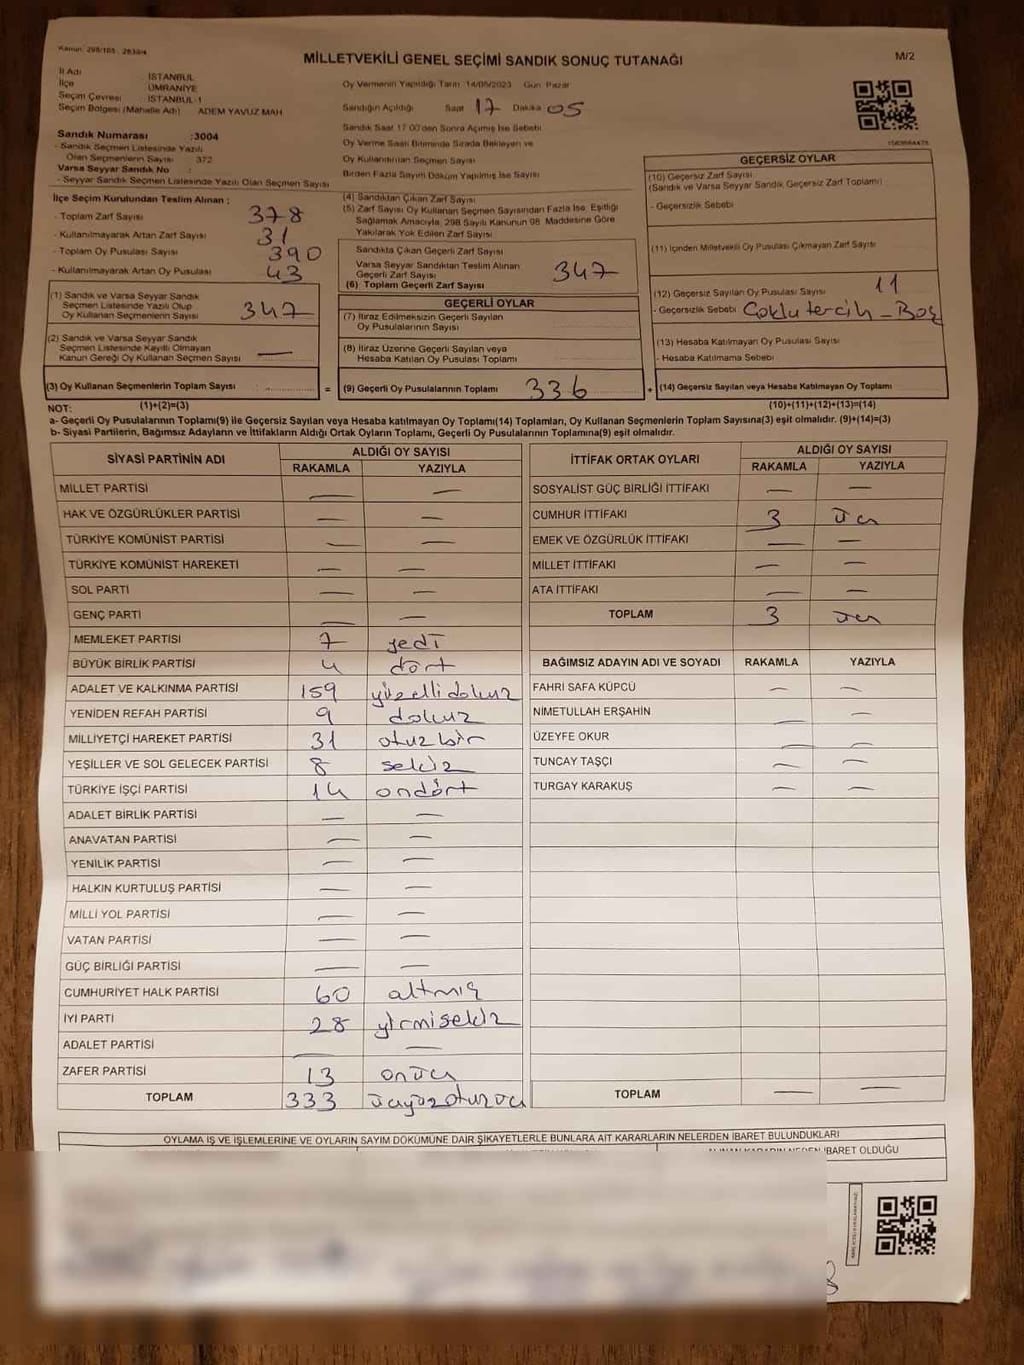 Kanun: 298/105 - 2839/4
MİLLETVEKİLİ GENEL SEÇİMİ SANDIK SONUÇ TUTANAĞI
M/2
İl Adı : İSTANBUL
İlçe : ÜMRANİYE
Seçim Çevresi : İSTANBUL-1
Seçim Bölgesi (Mahalle Adı) : ADEM YAVUZ MAH
Sandık Numarası :3004
- Sandık Seçmen Listesinde Yazılı
Olan Seçmenlerin Sayısı : 372
Varsa Seyyar Sandık No :
- Seyyar Sandık Seçmen Listesinde Yazılı Olan Seçmen Sayısı
Oy Vermenin Yapıldığı Tarih: 14/05/2023 Gün: Pazar
Sandığın Açıldığı Saat 17 Dakika 05
Sandık Saat 17:00'den Sonra Açılmış İse Sebebi
Oy Verme Saati Bitiminde Sırada Bekleyen ve
Oy Kullandırılan Seçmen Sayısı
Birden Fazla Sayım Döküm Yapılmış İse Sayısı
İlçe Seçim Kurulundan Teslim Alınan :
- Toplam Zarf Sayısı 378
- Kullanılmayarak Artan Zarf Sayısı 31
- Toplam Oy Pusulası Sayısı 390
- Kullanılmayarak Artan Oy Pusulası 43
(1) Sandık ve Varsa Seyyar Sandık
Seçmen Listesinde Yazılı Olup
Oy Kullanan Seçmenlerin Sayısı 347
(2) Sandık ve Varsa Seyyar Sandık
Seçmen Listesinde Kayıtlı Olmayan
Kanun Gereği Oy Kullanan Seçmen Sayısı —
(3) Oy Kullanan Seçmenlerin Toplam Sayısı =
(1)+(2)=(3)
(4) Sandıktan Çıkan Zarf Sayısı
(5) Zarf Sayısı Oy Kullanan Seçmen Sayısından Fazla İse, Eşitliği
Sağlamak Amacıyla, 298 Sayılı Kanunun 98. Maddesine Göre
Yakılarak Yok Edilen Zarf Sayısı
Sandıkta Çıkan Geçerli Zarf Sayısı
Varsa Seyyar Sandıktan Teslim Alınan
Geçerli Zarf Sayısı
(6) Toplam Geçerli Zarf Sayısı 347
GEÇERLİ OYLAR
(7) İtiraz Edilmeksizin Geçerli Sayılan
Oy Pusulalarının Sayısı
(8) İtiraz Üzerine Geçerli Sayılan veya
Hesaba Katılan Oy Pusulası Toplamı
(9) Geçerli Oy Pusulalarının Toplamı 336 +
GEÇERSİZ OYLAR
(10) Geçersiz Zarf Sayısı
(Sandık ve Varsa Seyyar Sandık Geçersiz Zarf Toplamı)
- Geçersizlik Sebebi
(11) İçinden Milletvekili Oy Pusulası Çıkmayan Zarf Sayısı
(12) Geçersiz Sayılan Oy Pusulası Sayısı 11
- Geçersizlik Sebebi Çoklu tercih - Boş
(13) Hesaba Katılmayan Oy Pusulası Sayısı
- Hesaba Katılmama Sebebi
(14) Geçersiz Sayılan veya Hesaba Katılmayan Oy Pusulası Toplamı
(10)+(11)+(12)+(13)=(14)
NOT:
a- Geçerli Oy Pusulalarının Toplamı(9) ile Geçersiz Sayılan veya Hesaba katılmayan Oy Toplamı(14) Toplamları, Oy Kullanan Seçmenlerin Toplam Sayısına(3) eşit olmalıdır. (9)+(14)=(3)
b- Siyasi Partilerin, Bağımsız Adayların ve İttifakların Aldığı Ortak Oyların Toplamı, Geçerli Oy Pusulalarının Toplamına(9) eşit olmalıdır.
SİYASİ PARTİNİN ADI ALDIĞI OY SAYISI
RAKAMLA YAZIYLA
MİLLET PARTİSİ — —
HAK VE ÖZGÜRLÜKLER PARTİSİ — —
TÜRKİYE KOMÜNİST PARTİSİ — —
TÜRKİYE KOMÜNİST HAREKETİ — —
SOL PARTİ — —
GENÇ PARTİ — —
MEMLEKET PARTİSİ 7 yedi
BÜYÜK BİRLİK PARTİSİ 4 dört
ADALET VE KALKINMA PARTİSİ 159 yüzellidokuz
YENİDEN REFAH PARTİSİ 9 dokuz
MİLLİYETÇİ HAREKET PARTİSİ 31 otuzbir
YEŞİLLER VE SOL GELECEK PARTİSİ 8 sekiz
TÜRKİYE İŞÇİ PARTİSİ 14 ondört
ADALET BİRLİK PARTİSİ — —
ANAVATAN PARTİSİ — —
YENİLİK PARTİSİ — —
HALKIN KURTULUŞ PARTİSİ — —
MİLLİ YOL PARTİSİ — —
VATAN PARTİSİ — —
GÜÇ BİRLİĞİ PARTİSİ — —
CUMHURİYET HALK PARTİSİ 60 altmış
İYİ PARTİ 28 yirmisekiz
ADALET PARTİSİ — —
ZAFER PARTİSİ 13 onüç
TOPLAM 333 üçyüzotuzüç
İTTİFAK ORTAK OYLARI ALDIĞI OY SAYISI
RAKAMLA YAZIYLA
SOSYALİST GÜÇ BİRLİĞİ İTTİFAKI — —
CUMHUR İTTİFAKI 3 üç
EMEK VE ÖZGÜRLÜK İTTİFAKI — —
MİLLET İTTİFAKI — —
ATA İTTİFAKI — —
TOPLAM 3 üç
BAĞIMSIZ ADAYIN ADI VE SOYADI RAKAMLA YAZIYLA
FAHRİ SAFA KÜPCÜ — —
NİMETULLAH ERŞAHİN — —
ÜZEYFE OKUR — —
TUNCAY TAŞÇI — —
TURGAY KARAKUŞ — —
TOPLAM — —
OYLAMA İŞ VE İŞLEMLERİNE VE OYLARIN SAYIM DÖKÜMÜNE DAİR ŞİKAYETLERLE BUNLARA AİT KARARLARIN NELERDEN İBARET BULUNDUKLARI
İBARET OLDUĞU